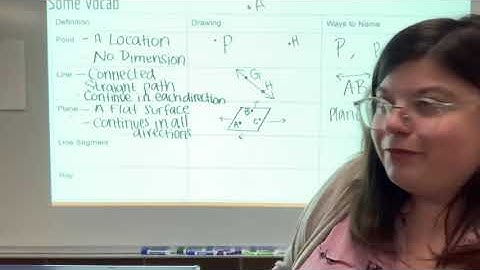 Some Vocab
A
Definition Drawing Ways to Name
Point - A Location
No Dimension
P H P, P
Line - Connected
Straight path
- Continue in each direction
G
H
AB
Plane - A flat surface
- Continues in all
directions
B
A C
Line Segment
Ray